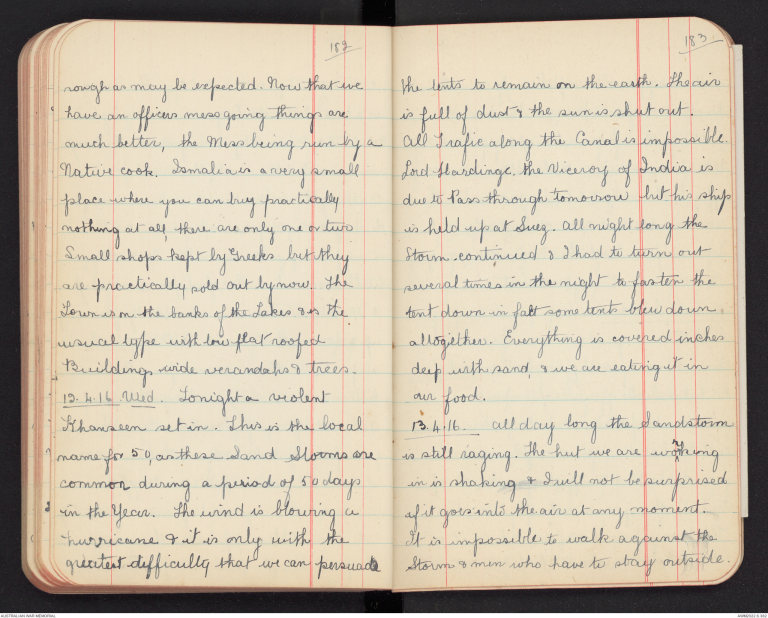 182
rough as may be expected. Now that we
have an officers mess going things are
much better, the Mess being run by a
Native cook. Ismalia is a very small
place where you can buy practically
nothing at all, there are only one or two
Small shops kept by Greeks but they
are practically sold out by now. The
Town is on the banks of the Lakes & is the
usual type with low flat roofed
Buildings wide verandahs & trees.
13.4.16 Wed. Tonight a violent
Khamseen set in. This is the local
name for 50, as these Sand Storms are
common during a period of 50 days
in the Year. The wind is blowing a
hurricane & it is only with the
greatest difficulty that we can persuade
183
the tents to remain on the earth. The air
is full of dust & the sun is shut out.
All Trafic along the Canal is impossible
Lord Hardinge, the Viceroy of India is
due to Pass through tomorrow but his ship
is held up at Suez. All night long the
Storm continued & I had to turn out
several times in the night to fasten the
tent down in fact some tents blew down
altogether. Everything is covered inches
deep with sand, & we are eating it in
our food.
13.4.16. All day long the Sandstorm
is still raging. The hut we are working
in is shaking & I will not be surprised
if it goes into the air at any moment.
It is impossible to walk against the
Storm & men who have to stay outside.
AUSTRALIAN WAR MEMORIAL